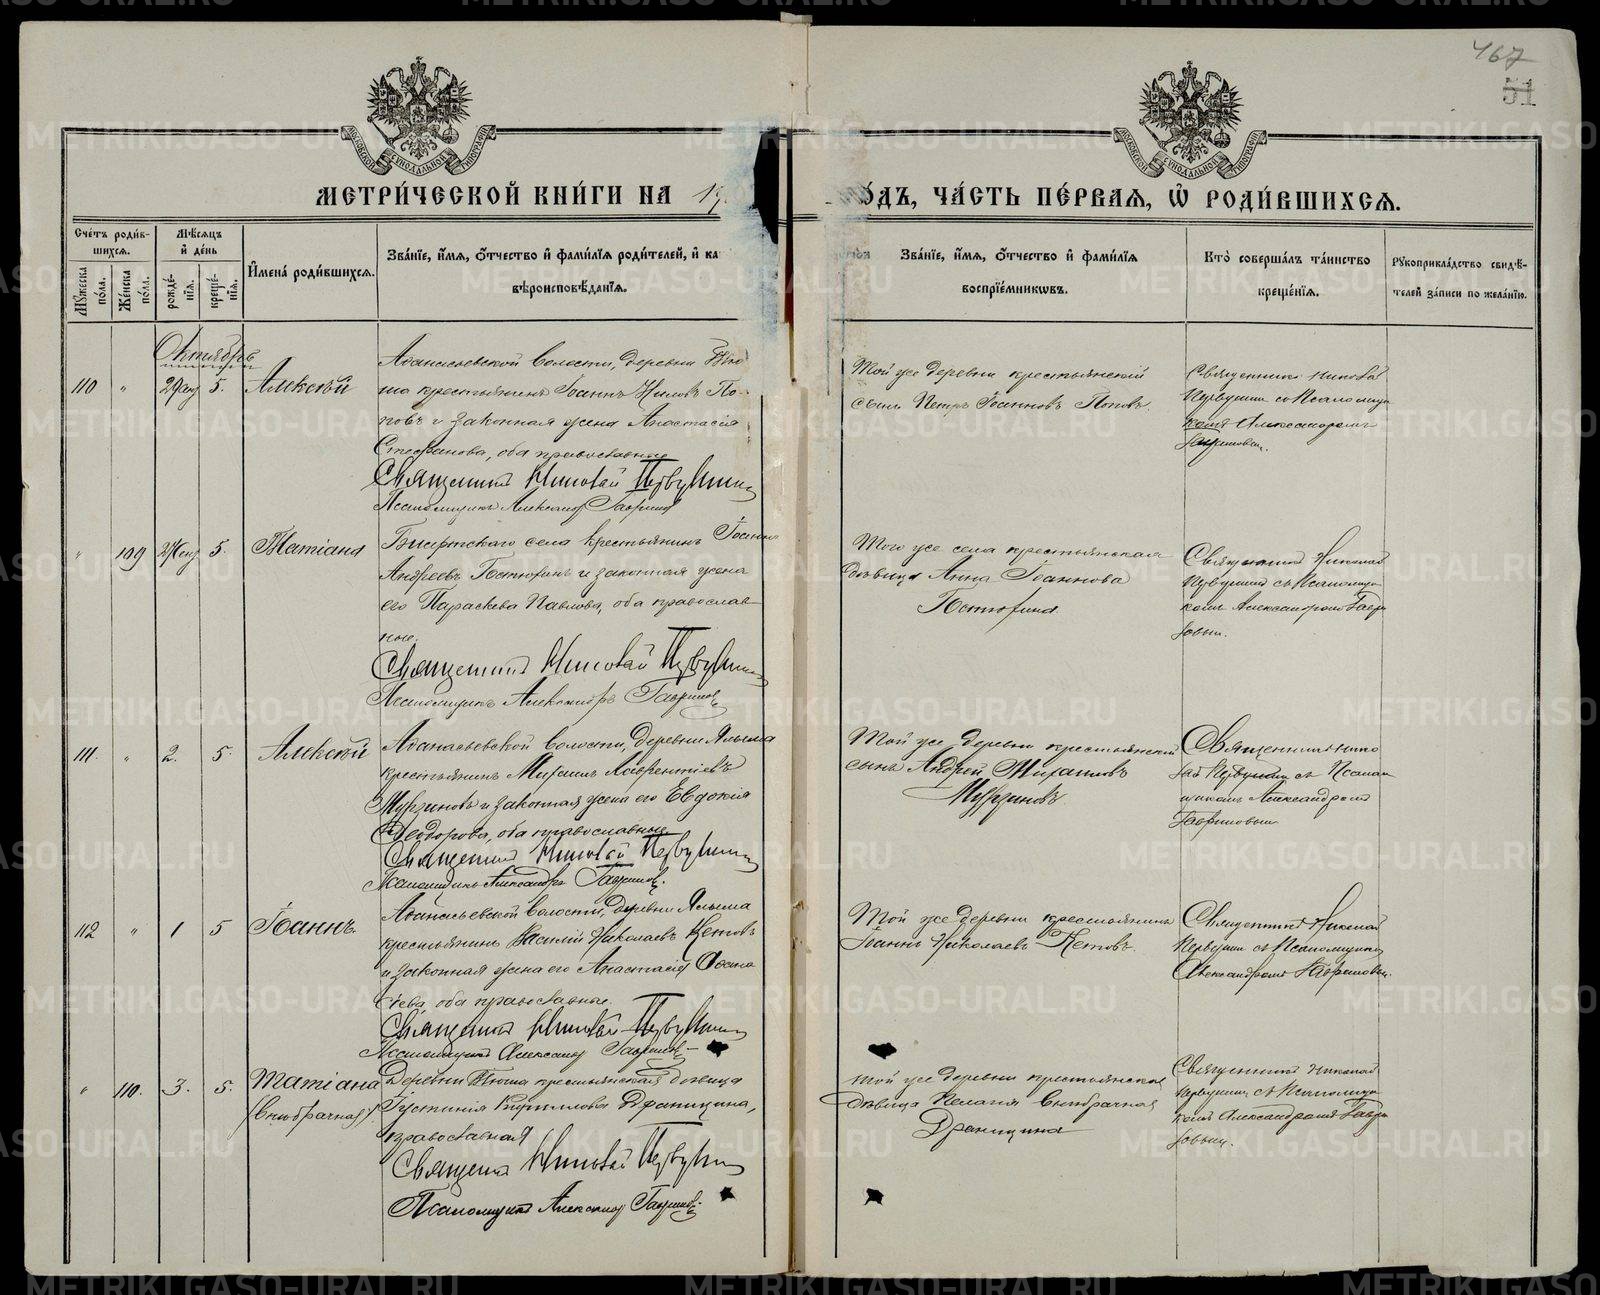 467
51
МОСКОВСКОЙ СѴНОДАЛЬНОЙ ТИПОГРАФІИ
МОСКОВСКОЙ СѴНОДАЛЬНОЙ ТИПОГРАФІИ
МЕТРИ́ЧЕСКОЙ КНИ́ГИ НА 19
О́ДЪ, ЧА́СТЬ ПЕ́РВАѦ, Ѽ РОДИ́ВШИХСѦ.
Сче́тъ роди́в-
шихсѧ.
Мꙋ́жеска по́ла.
Же́нска по́ла.
Мѣ́сѧцъ
и҆ де́нь
рожде́-
нїѧ.
креще́-
нїѧ.
И҆мена̀ роди́вшихсѧ.
Зва́нїе, и҆́мѧ, ѻ҆́тчество и҆ фами́лїѧ роди́телей, и҆ ка
вѣроисповѣ́данїѧ.
Зва́нїе, и҆́мѧ, ѻ҆́тчество и҆ фами́лїѧ
воспрїе́мникѡвъ.
Кто̀ соверша́лъ та́инство
креще́нїѧ.
Рꙋкоприкла́дство свидѣ́-
телей за́писи по жела́нїю.
Октябрь
110 " 5. Алексѣй
Афанасьевской волости, деревни
крестьянинъ Іоаннъ Ниловъ По-
повъ и законная жена Анастасія
Стефанова, оба православные
Священникъ Николай Первушинъ
Псаломщикъ Александръ Гавриловъ
Той же деревни крестьянскій
сынъ Петръ Іоанновъ Поповъ.
Священникъ Николай
Первушинъ съ Псаломщи
комъ Александромъ
Гавриловым.
" 109 5. Татіана
Бисертскаго села крестьянинъ Іоаннъ
Андреевъ и законная жена
его Параскева Павлова, оба православ-
ные.
Священникъ Николай Первушинъ
Псаломщикъ Александръ Гавриловъ
Того же села крестьянская
дѣвица Анна Іоаннова
Священникъ Николай
Первушинъ съ Псаломщи
комъ Александромъ Гаври
ловым.
111. " 2. 5. Алексѣй
Афанасьевской волости, деревни Ялыма
крестьянинъ Михаилъ Лаврентіевъ
Мурзиновъ и законная жена его Евдокія
Ѳеодорова, оба православные
Священникъ Николай Первушинъ
Псаломщикъ Александръ Гавриловъ.
Той же деревни крестьянскій
сынъ Андрей Михаиловъ
Мурзиновъ.
Священникъ Нико
лай Первушинъ съ Псалом
щикомъ Александромъ
Гавриловым
112 " 1 5 Іоаннъ.
Афанасьевской волости, деревни Ялыма
крестьянинъ Василій Николаевъ Кетовъ
и законная жена его Анастасія
оба православные.
Священникъ Николай Первушинъ
Псаломщикъ Александръ Гавриловъ
Той же деревни крестьянинъ
Іоаннъ Николаевъ Кетовъ.
Священникъ Николай
Первушинъ съ Псаломщикомъ
Александромъ Гавриловым.
" 110. 3. 5. Татіана
(внѣбрачная)
Деревни крестьянская дѣвица
Іустинія Кириллова Драницина,
православная
Священникъ Николай Первушинъ
Псаломщикъ Александръ Гавриловъ
Той же деревни крестьянская
дѣвица Пелагія внѣбрачная
Драницина
Священникъ Николай
Первушинъ съ Псаломщи
комъ Александромъ Гаври
ловым.
METRIKI.GASO-URAL.RU